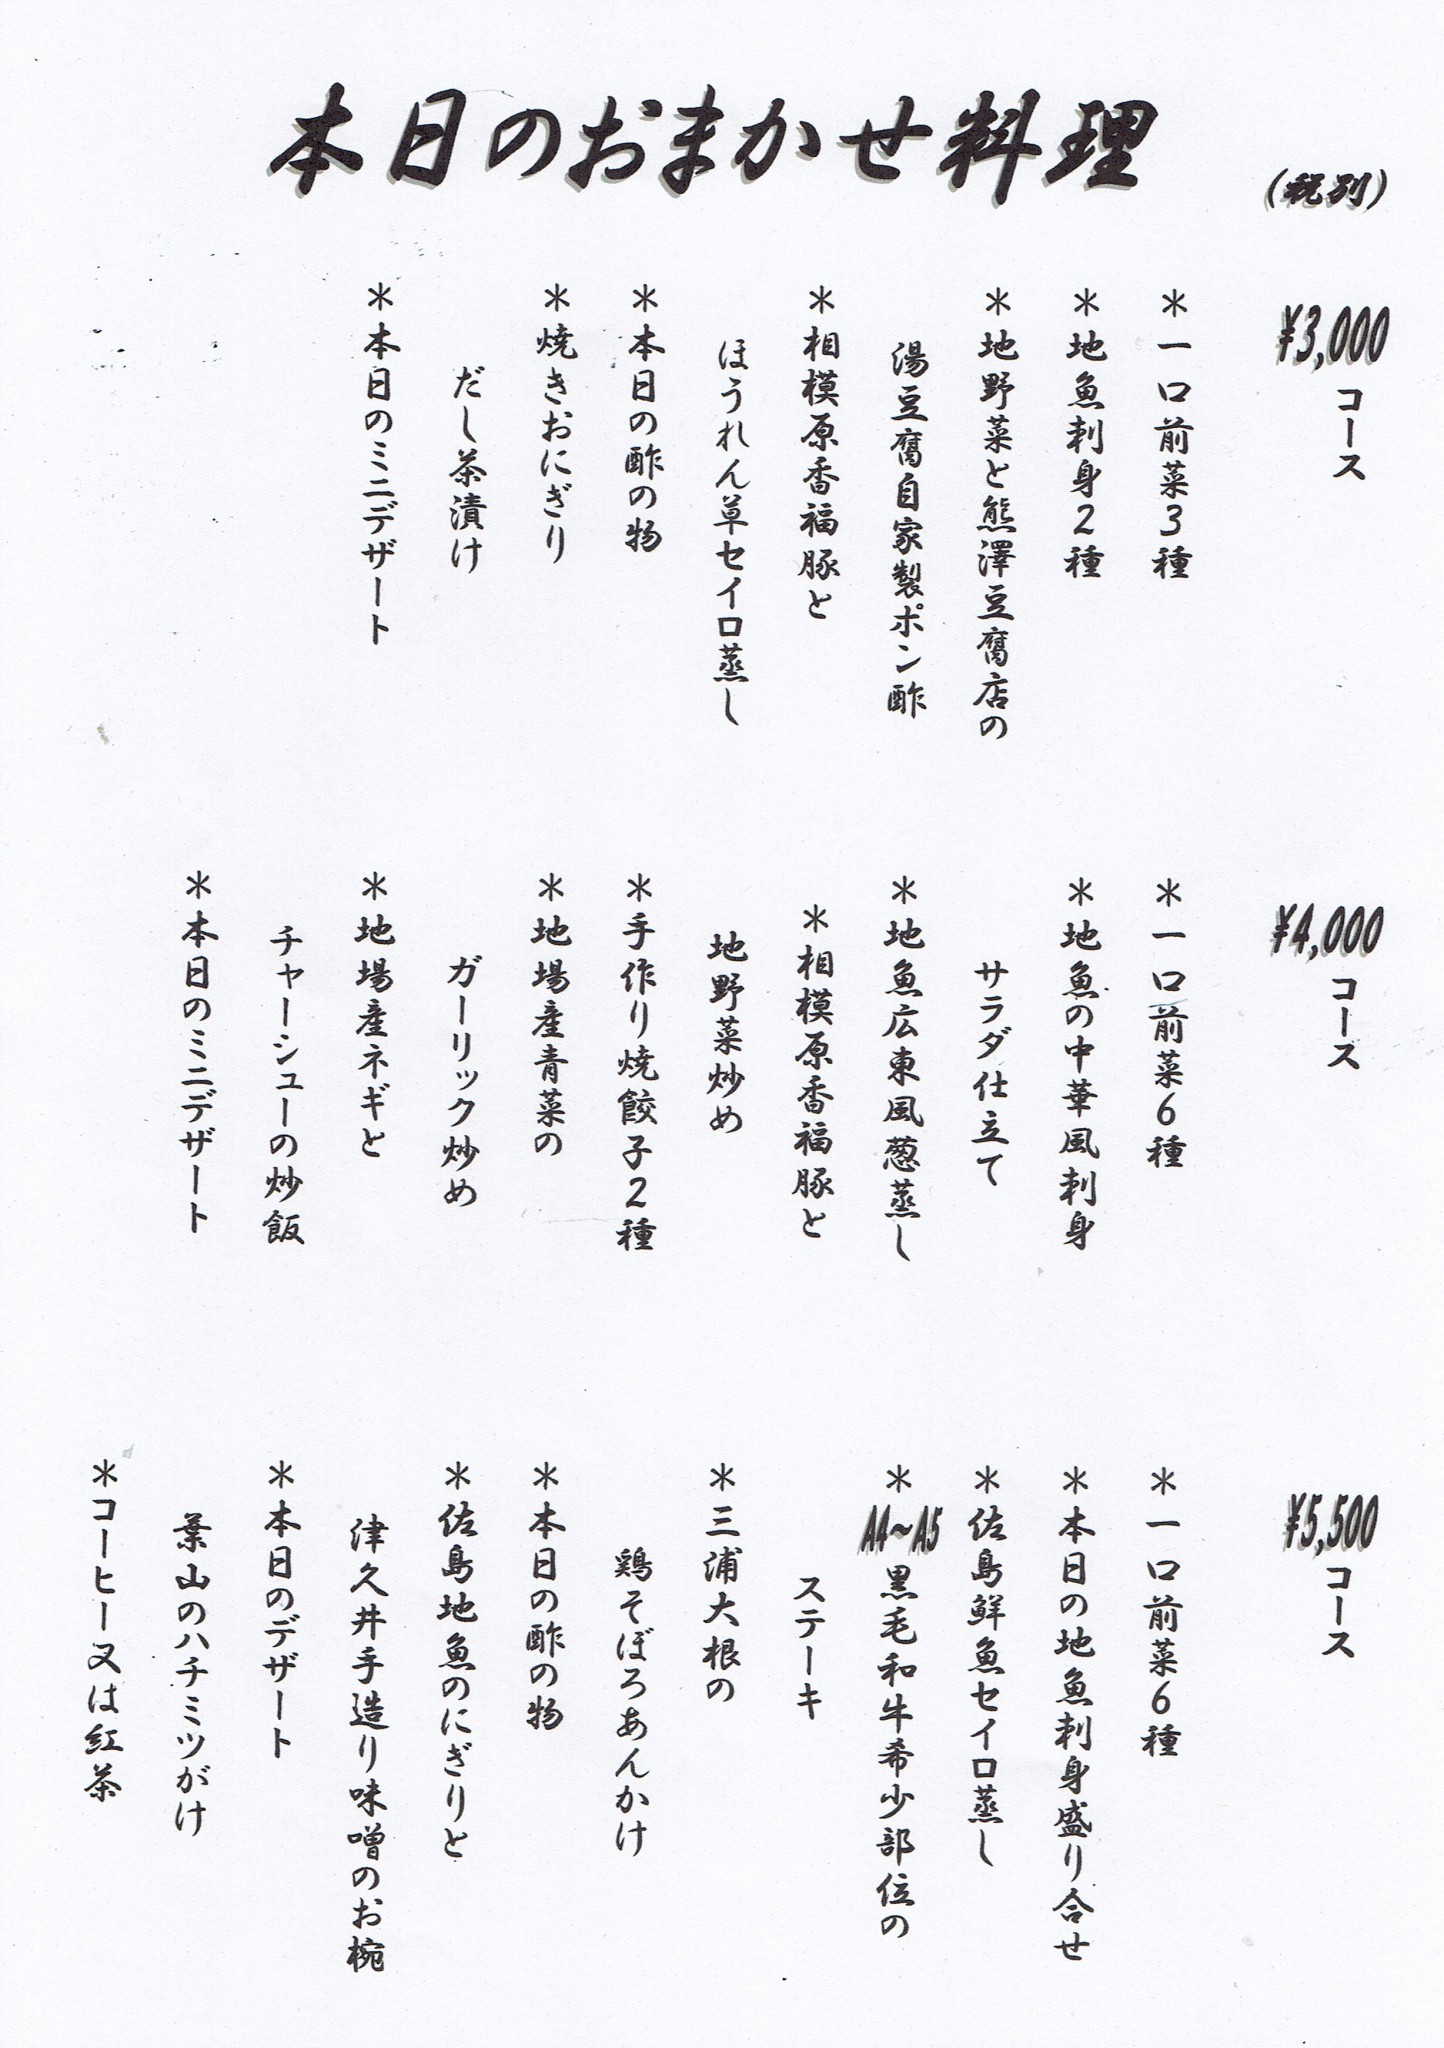 本日のおまかせ料理
(税別)
¥3,000コース
＊一口前菜3種
＊地魚刺身2種
＊地野菜と熊澤豆腐店の
湯豆腐自家製ポン酢
＊相模原香福豚と
ほうれん草セイロ蒸し
＊本日の酢の物
＊焼きおにぎり
だし茶漬け
＊本日のミニデザート
¥4,000コース
＊一口前菜6種
＊地魚の中華風刺身
サラダ仕立て
＊地魚広東風葱蒸し
＊相模原香福豚と
地野菜炒め
＊手作り焼餃子2種
＊地場産青菜の
ガーリック炒め
＊地場産ネギと
チャーシューの炒飯
＊本日のミニデザート
¥5,500コース
＊一口前菜6種
＊本日の地魚刺身盛り合せ
＊佐島鮮魚セイロ蒸し
＊A4~A5黒毛和牛希少部位の
ステーキ
＊三浦大根の
鶏そぼろあんかけ
＊本日の酢の物
＊佐島地魚のにぎりと
津久井手造り味噌のお椀
＊本日のデザート
葉山のハチミツがけ
＊コーヒー又は紅茶